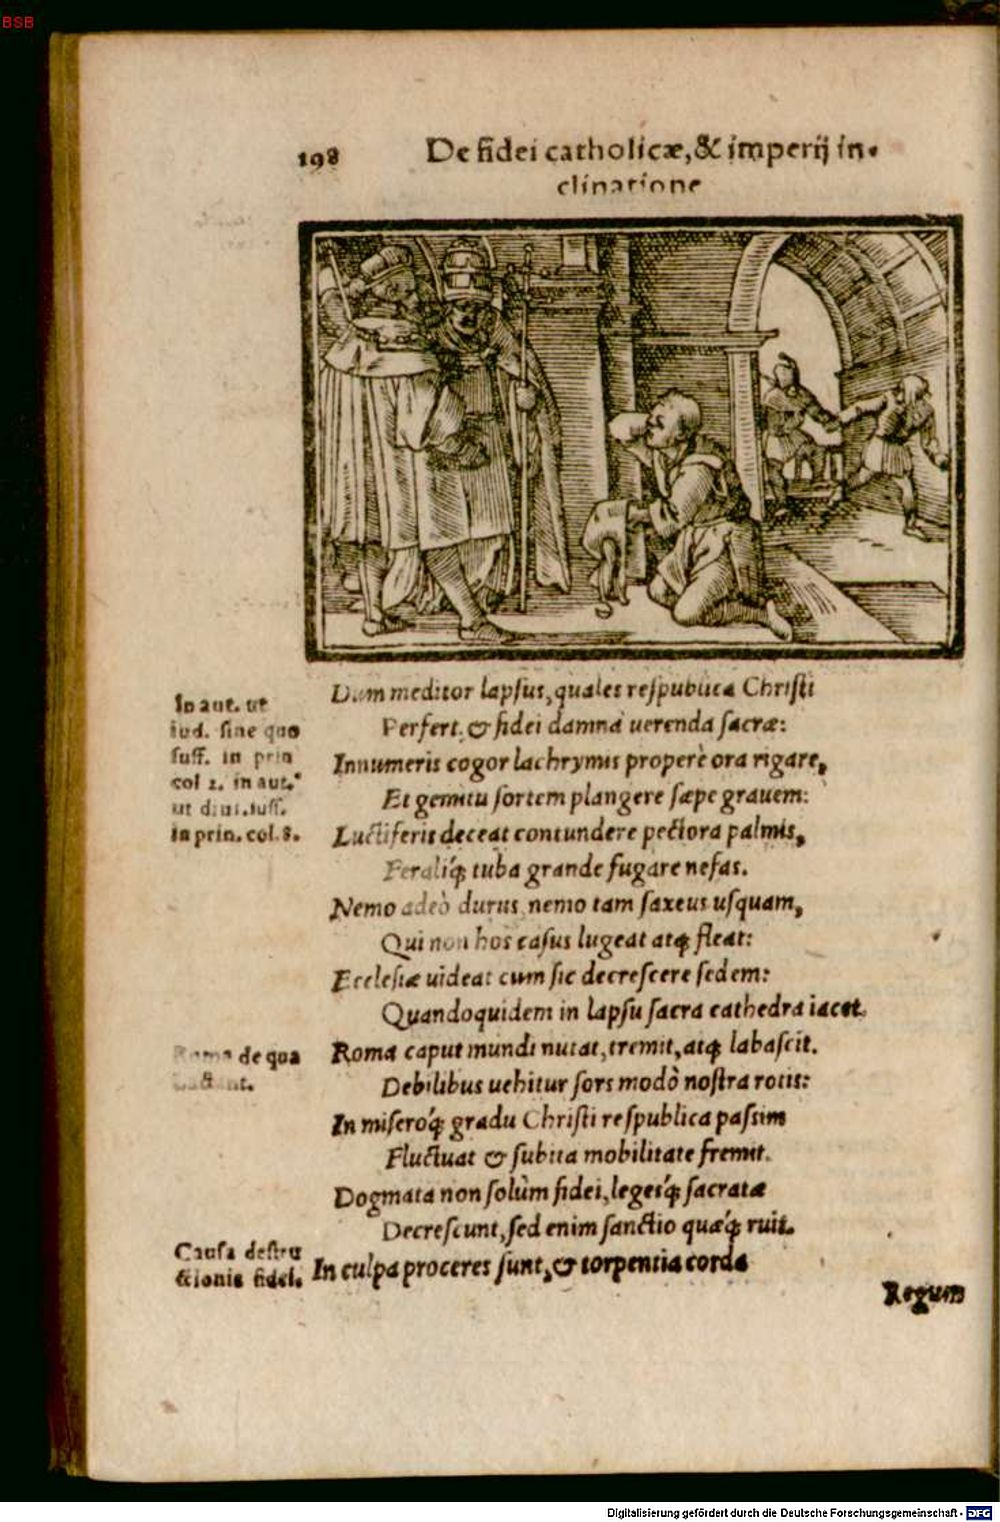 BSB
198
De fidei catholicæ, & imperij in-
clinatione
In aut. ut
iud. sine quo
suff. in prin
col 2. in aut.
ut diui. iuss.
in prin. col. 8.
Dum meditor lapsus, quales respublica Christi
Perfert, & fidei damna uerenda sacræ:
Innumeris cogor lachrymis properè ora rigare,
Et gemitu sortem plangere sæpe grauem:
Luctiferis deceat contundere pectora palmis,
Feraliq́; tuba grande fugare nefas.
Nemo adeò durus, nemo tam saxeus usquam,
Qui non hos casus lugeat atq; fleat:
Ecclesiæ uideat cum sic decrescere sedem:
Quandoquidem in lapsu sacra cathedra iacet.
Roma de qua
Roma caput mundi nutat, tremit, atq; labascit.
Debilibus uehitur sors modò nostra rotis:
In miseroq́; gradu Christi respublica passim
Fluctuat & subita mobilitate fremit.
Dogmata non solùm fidei, legesq́; sacratæ
Decrescunt, sed enim sanctio quæq́; ruit.
Causa destru
ctionis fidei.
In culpa proceres sunt, & torpentia corda
Regum
Digitalisierung gefördert durch die Deutsche Forschungsgemeinschaft - DFG